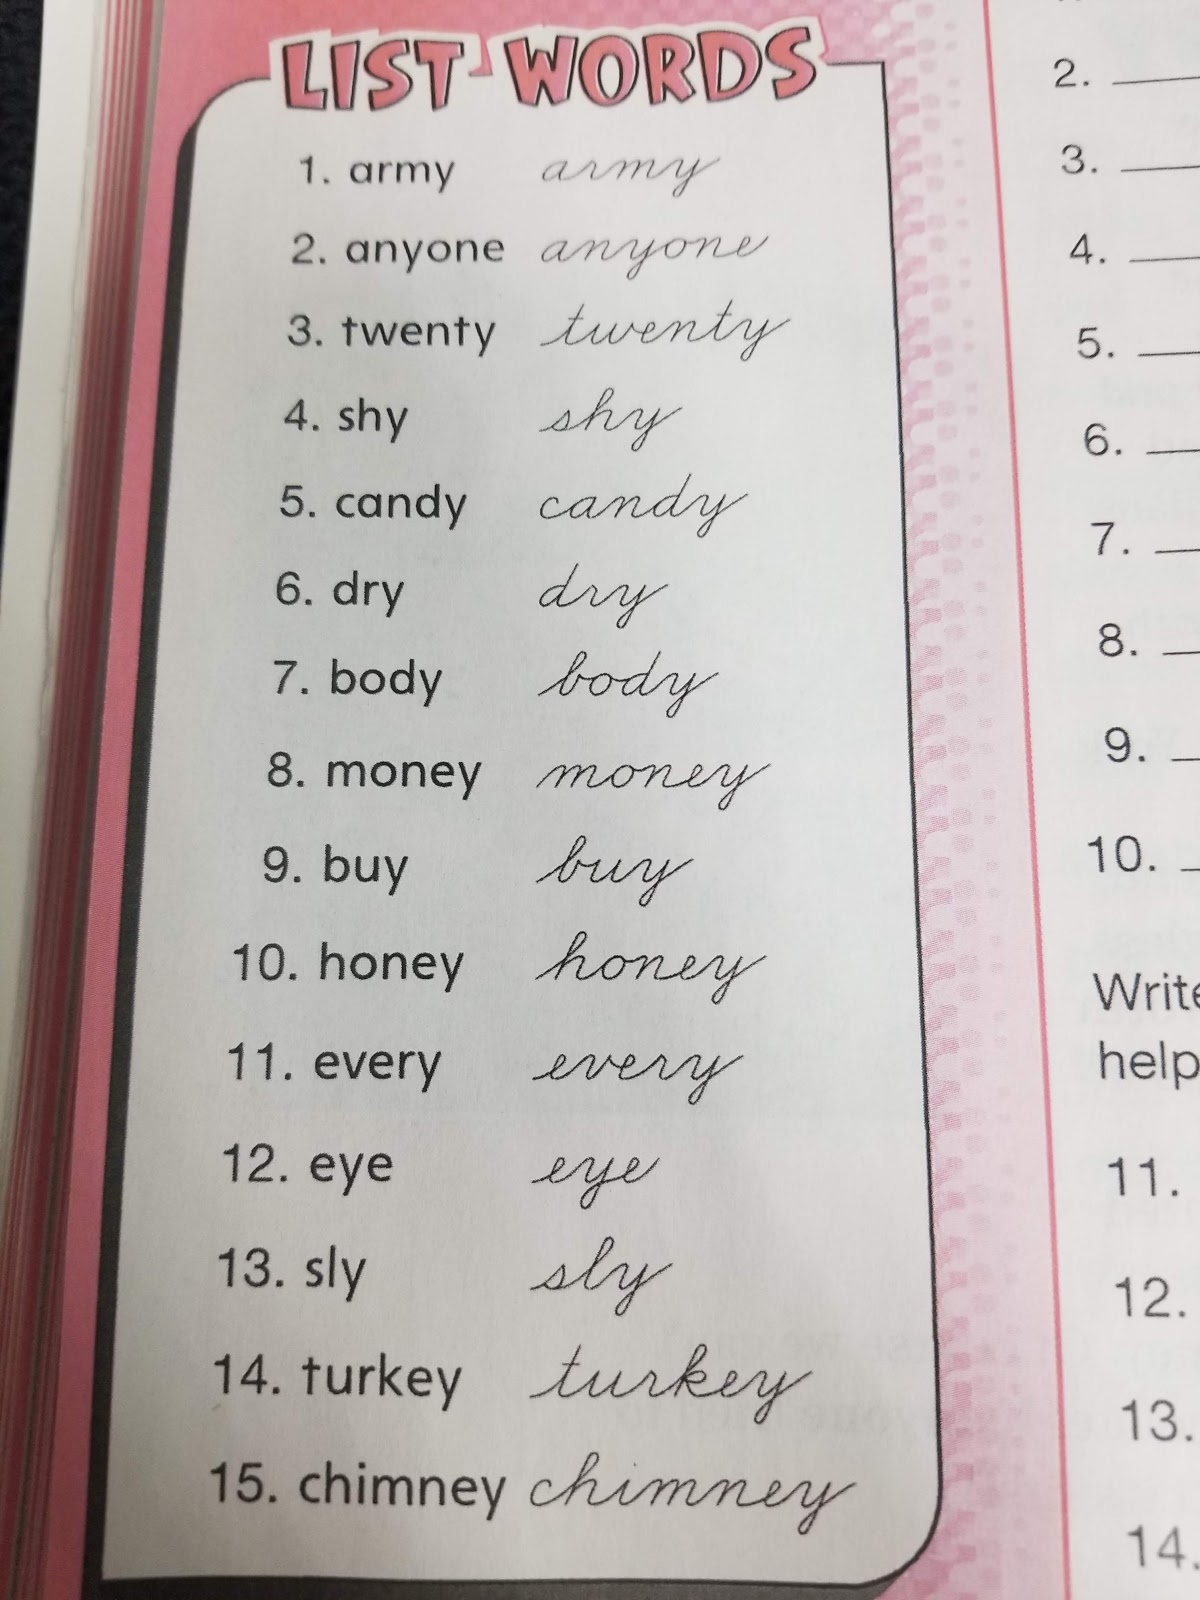 LIST WORDS
1. army army
2. anyone anyone
3. twenty twenty
4. shy shy
5. candy candy
6. dry dry
7. body body
8. money money
9. buy buy
10. honey honey
11. every every
12. eye eye
13. sly sly
14. turkey turkey
15. chimney chimney
2.
3.
4.
5.
6.
7.
8.
9.
10.
Write
help
11.
12.
13.
14.